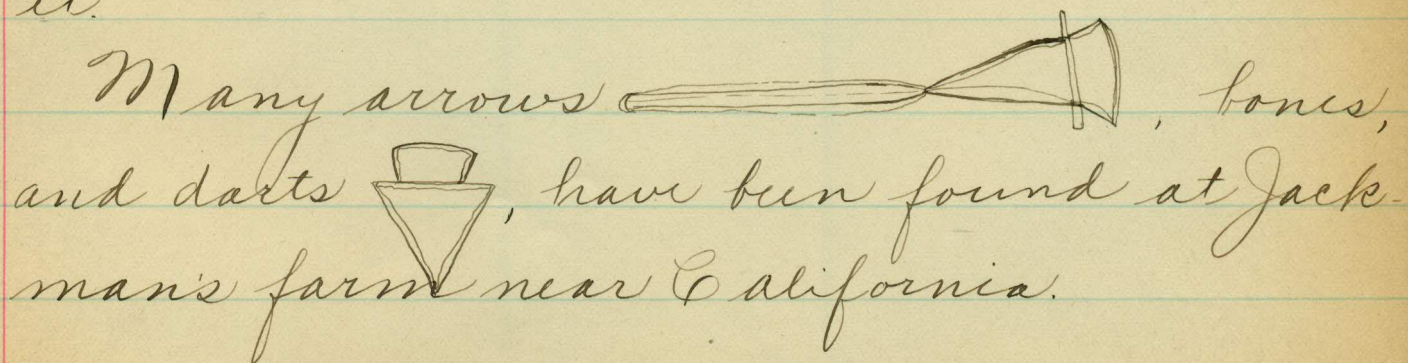 it.
Many arrows , bones,
and darts , have been found at Jack-
man's farm near California.